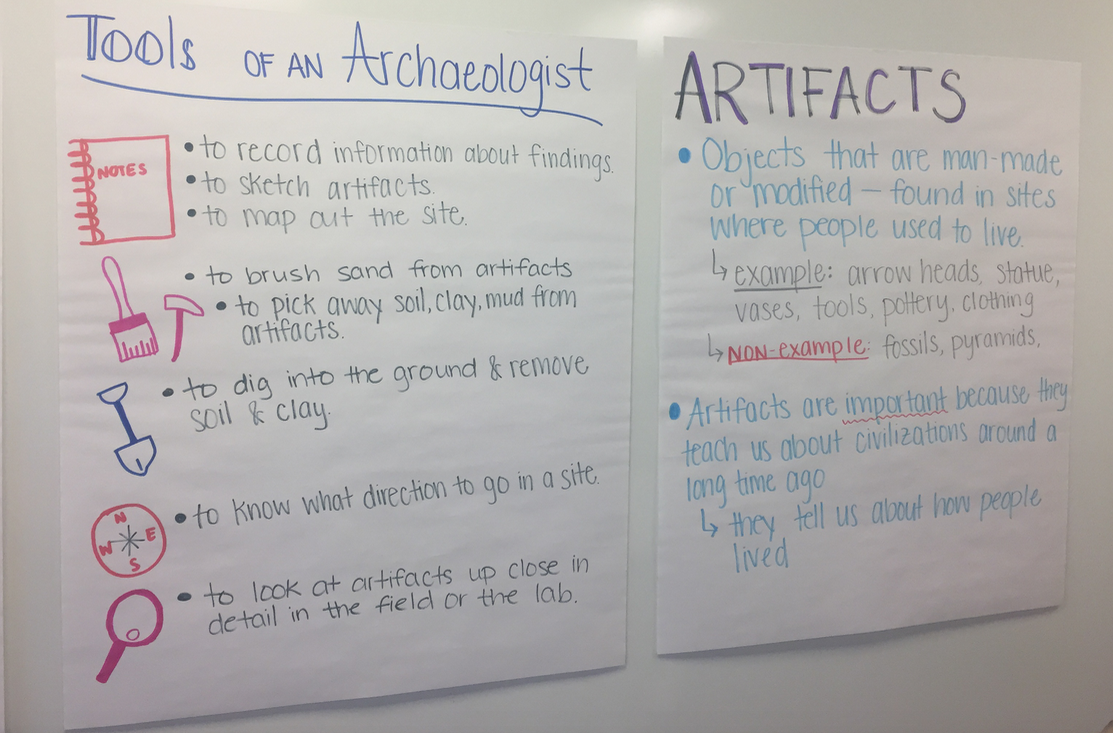 Tools OF AN Archaeologist
NOTES
• to record information about findings.
• to sketch artifacts.
• to map out the site.
• to brush sand from artifacts
• to pick away soil, clay, mud from
artifacts.
• to dig into the ground & remove
soil & clay.
• to know what direction to go in a site.
N
W E
S
• to look at artifacts up close in
detail in the field or the lab.
ARTIFACTS
• Objects that are man-made
or modified — found in sites
where people used to live.
↳ example: arrow heads, statue,
vases, tools, pottery, clothing
↳ NON-example: fossils, pyramids,
• Artifacts are important because they
teach us about civilizations around a
long time ago
↳ they tell us about how people
lived